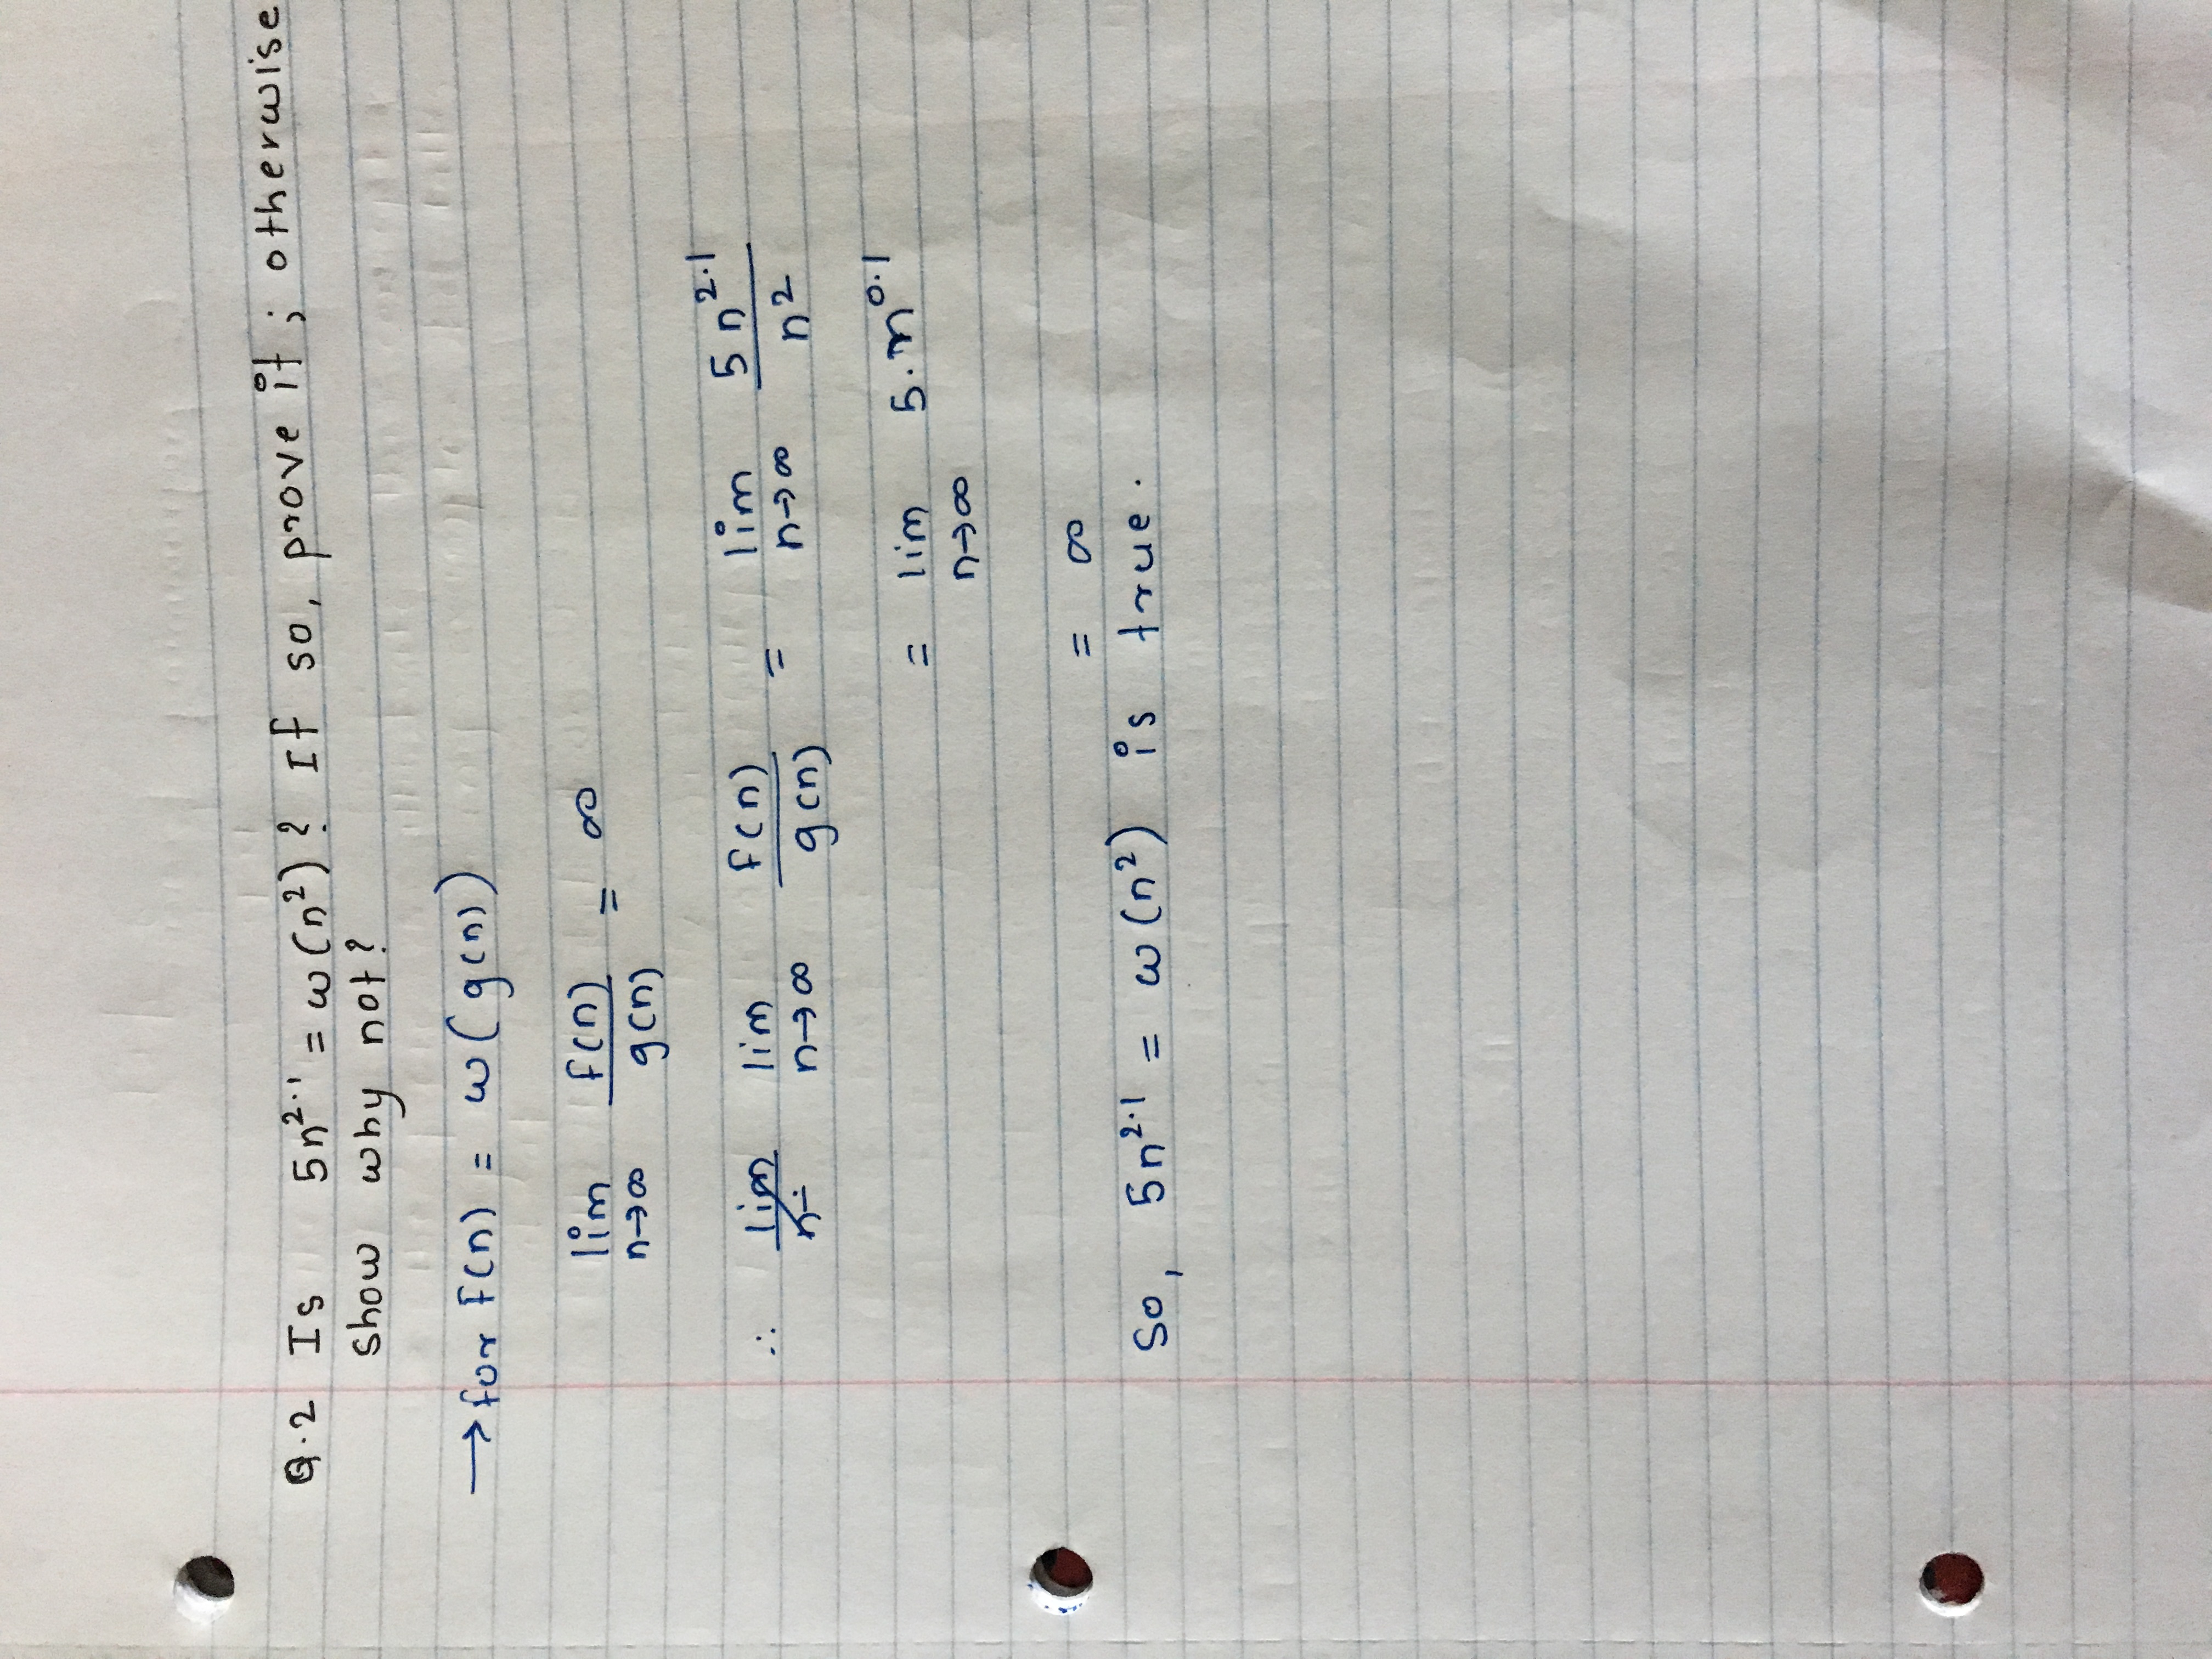 Q.2 Is 5n^2.1 = ω(n^2)? If so, prove it; otherwise
show why not?
→ for f(n) = ω(g(n))
lim n→∞ f(n)/g(n) = ∞
∴ lim n→∞ f(n)/g(n) = lim n→∞ 5n^2.1/n^2
= lim n→∞ 5.n^0.1
= ∞
So, 5n^2.1 = ω(n^2) is true.